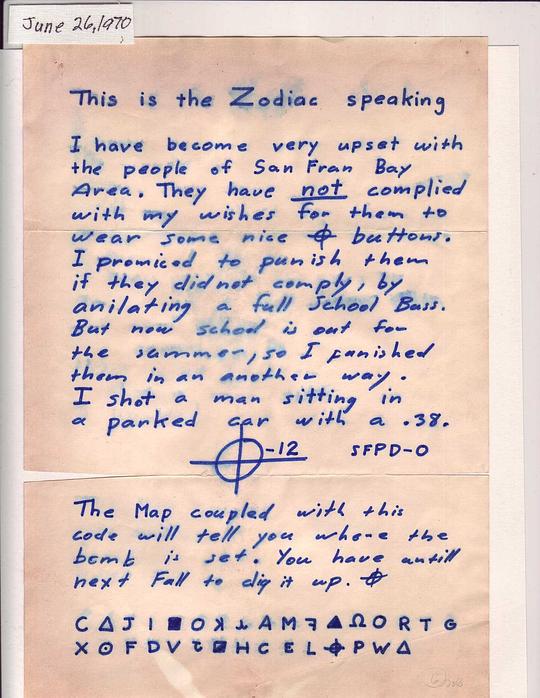 June 26, 1970
This is the Zodiac speaking
I have become very upset with
the people of San Fran Bay
Area. They have not complied
with my wishes for them to
wear some nice ⌖ buttons.
I promiced to punish them
if they didnot comply, by
anilating a full School Buss.
But now school is out for
the summer, so I punished
them in an another way.
I shot a man sitting in
a parked car with a .38.
⌖-12 SFPD-0
The Map coupled with this
code will tell you where the
bomb is set. You have untill
next Fall to dig it up. ⌖
C Δ J I ■ O ʞ ⅄ A M ꟻ ▲ Ω O R T G
X ⊙ F D V ꞇ ◪ H C E L ⌖ P W Δ